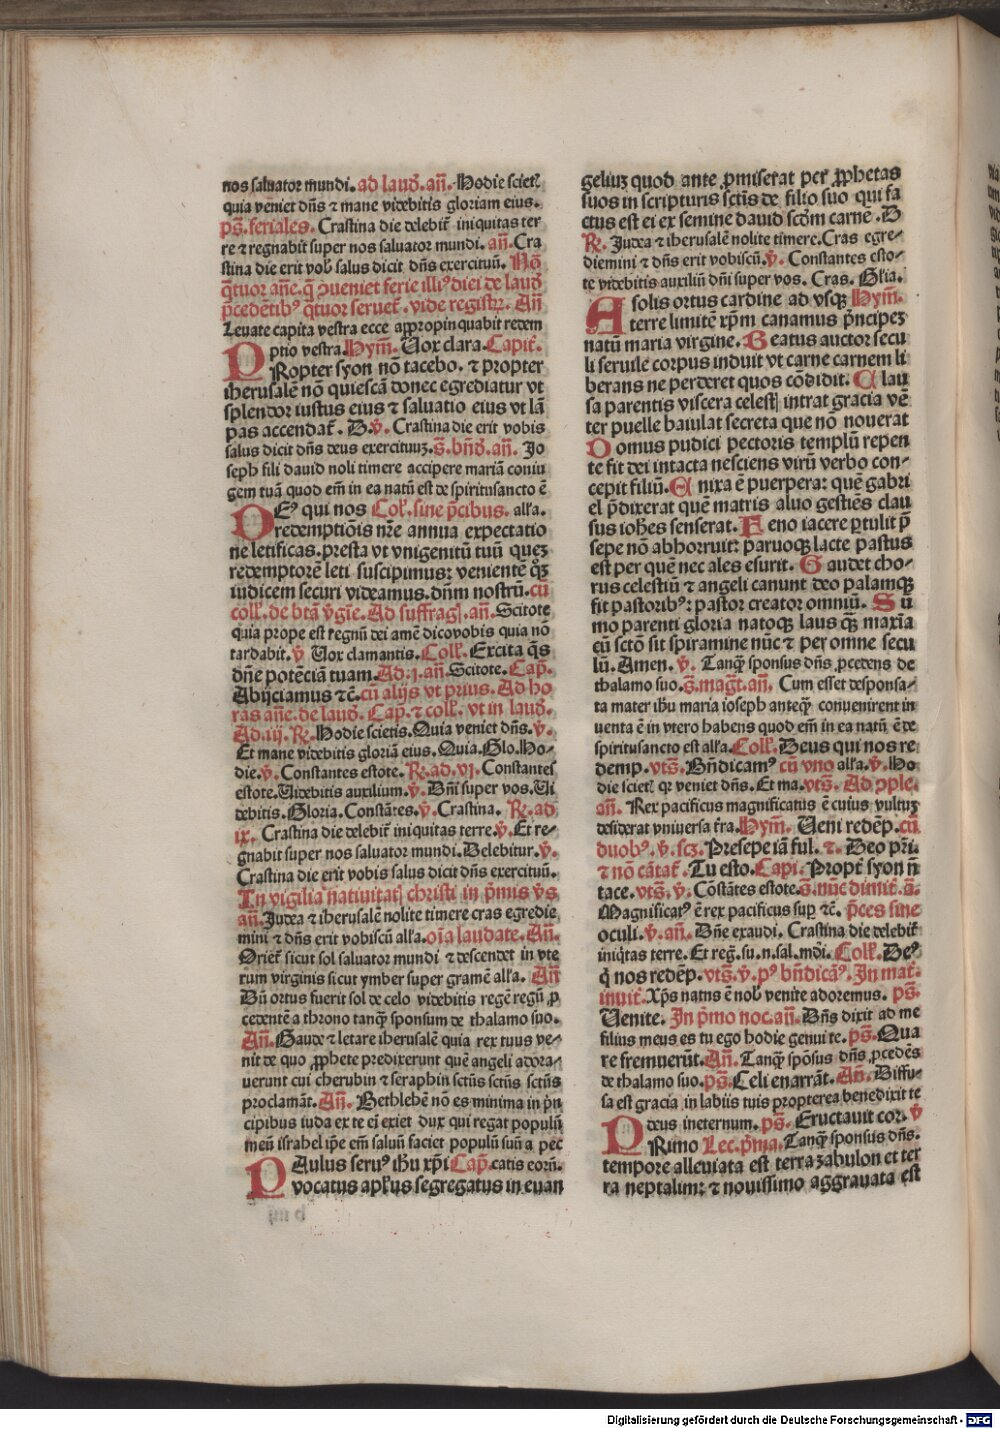 nos saluator mundi. ad laud̃. an̄. Hodie scietꝭ
quia veniet dn̄s ⁊ mane videbitis gloriam eius.
ps̄. feriales. Crastina die delebit᷑ iniquitas ter
re ⁊ regnabit super nos saluator mundi. an̄. Cra
stina die erit vob̃ salus dicit dn̄s exercituū. No͂
q̄tuor an̄e. q̄ ꝯueniet ferie illiꝰ diei de laud̃
p̄cedētibꝰ q̄tuor seruet᷑. vide registrꝝ. An̄
Leuate capita vestra ecce appropinquabit redem
ptio vestra. Hym̄. Uox clara. Capit̃.
PRopter syon nō tacebo. ⁊ propter
iherusalē nō quiescā donec egrediatur vt
splendor iustus eius ⁊ saluatio eius vt lā
pas accendat᷑. D. v̄. Crastina die erit vobis
salus dicit dn̄s deus exercituuꝫ. s̄. bn̄d̃. an̄. Jo
seph fili dauid noli timere accipere mariā coniu
gem tuā quod em̄ in ea natū est de spiritusancto ē
DEꝰ qui nos Col̃. sine p̄cibus. all'a.
redemptiōis nr̄e annua expectatio
ne letificas. presta vt vnigenitū tuū queꝫ
redemptorē leti suscipimus: venientē q̊ꝫ
iudicem securi videamus. dn̄m nostrū. cū
coll'. de bt̄a v̄gīe. Ad suffragꝭ. an̄. Scitote
quia prope est regnū dei amē dico vobis quia nō
tardabit. v̄ Uox clamantis. Coll'. Excita q̄s
dn̄e potēciā tuam. Ad .j. an̄. Scitote. Cap̄.
Abijciamus ⁊c̄. cū alijs vt prius. Ad ho
ras an̄e. de laud̃. Cap̄. ⁊ coll'. vt in laud̃.
Ad .iij. R̄. Hodie scietis. Quia veniet dn̄s. v̄.
Et mane videbitis gloriā eius. Quia. Glo. Ho-
die. v̄. Constantes estote. R̄. ad. vj. Constantes
estote. Uidebitis auxilium. v̄. Dn̄i super vos. Ui
debitis. Gloria. Constātes. v̄. Crastina. R̄. ad
ix. Crastina die delebit᷑ iniquitas terre. v̄. Et re-
gnabit super nos saluator mundi. Delebitur. v̄.
Crastina die erit vobis salus dicit dn̄s exercituū.
In vigilia natiuitatꝭ christi in p̄mis v̄s
an̄. Judea ⁊ iherusalē nolite timere cras egredie
mini ⁊ dn̄s erit vobiscū all'a. oīa laudate. An̄.
Oriet᷑ sicut sol saluator mundi ⁊ descendet in vte
rum virginis sicut ymber super gramē all'a. An̄
Dū ortus fuerit sol de celo videbitis regē regū ꝓ
cedentē a throno tanqꝫ sponsum de thalamo suo.
An̄. Gaude ⁊ letare iherusalē quia rex tuus ve-
nit de quo ꝓphete predixerunt quē angeli adora-
uerunt cui cherubin ⁊ seraphin sctūs sctūs sctūs
proclamāt. An̄. Bethlehē nō es minima in p̄n
cipibus iuda ex te ei exiet dux qui regat populū
meū israhel ip̄e em̄ saluū faciet populū suū a pec
PAulus seruꝰ ihū xp̄i Cap̄. catis eorū.
vocatus apl'us segregatus in euan
geliuꝫ quod ante ꝓmiserat per ꝓphetas
suos in scripturis sctīs de filio suo qui fa
ctus est ei ex semine dauid scd̄m carnē. D
R̄. Judea ⁊ iherusalē nolite timere. Cras egre-
diemini ⁊ dn̄s erit vobiscū. v̄. Constantes esto-
te videbitis auxiliū dn̄i super vos. Cras. Gl'ia.
A solis ortus cardine ad vsqꝫ Hym̄.
terre limitē xp̄m canamus p̄ncipeꝫ
natū maria virgine. Beatus auctor secu
li seruile corpus induit vt carne carnem li
berans ne perderet quos cōdidit. Clau
sa parentis viscera celestꝭ intrat gracia vē
ter puelle baiulat secreta que nō nouerat
Domus pudici pectoris templū repen
te fit dei intacta nesciens virū verbo con-
cepit filiū. Enixa ē puerpera: quē gabri
el p̄dixerat quē matris aluo gestiēs clau
sus ioh̄es senserat. Feno iacere ꝑtulit p̄
sepe nō abhorruit: paruoqꝫ lacte pastus
est per quē nec ales esurit. Gaudet cho-
rus celestiū ⁊ angeli canunt deo palamqꝫ
fit pastoribꝰ: pastor creator omniū. Su
mo parenti gloria natoqꝫ laus q̄ꝫ maxīa
cū sctō sit spiramine nūc ⁊ per omne secu
lū. Amen. v̄. Tanqꝫ sponsus dn̄s ꝓcedens de
thalamo suo. s̄. mag̃t. an̄. Cum esset desponsa-
ta mater ihū maria ioseph anteqꝫ conuenirent in
uenta ē in vtero habens quod em̄ in ea natū ē de
spiritusancto est all'a. Coll'. Deus qui nos re
demp. vts̄. Bn̄dicamꝰ cū vno all'a. v̄. Ho
die scietꝭ qꝛ veniet dn̄s. Et ma. vts̄. Ad ꝯple.
an̄. Rex pacificus magnificatus ē cuius vultuꝫ
desiderat vniuersa t̃ra. Hym̄. Ueni redēp. cū
duobꝰ. v̄. scꝫ. Presepe iā ful. ⁊. Deo pr̄i.
⁊ nō cātat᷑. Tu esto. Capi. Propt̃ syon n̄
tace. vts̄. v̄. Cōstātes estote. s̄. nūc dimit̃. a̅.
Magnificatꝰ ē rex pacificus suꝑ ⁊c̄. p̄ces sine
oculi. v̄. an̄. Dn̄e exaudi. Crastina die delebit᷑
iniq̇tas terre. Et reg̃. su. n. sal. mōi. Coll'. Deꝰ
q̇ nos redēp. vts̄. v̄. pꝰ bn̄dicāꝰ. In mat̃.
inuit̃. Xp̄s natus ē nob̃ venite adoremus. ps̄.
Uenite. In p̄mo noc. an̄. Dn̄s dixit ad me
filius meus es tu ego hodie genui te. ps̄. Qua
re fremuerūt. An̄. Tanqꝫ spōsus dn̄s ꝓcedēs
de thalamo suo. ps̄. Celi enarrāt. An̄. Diffu-
sa est gracia in labiis tuis propterea benedixit te
deus in eternum. ps̄. Eructauit cor. v̄
PRimo Lec. p̄ma. Tanqꝫ sponsus dn̄s.
tempore alleuiata est terra zabulon et ter
ra neptalim: ⁊ nouissimo aggrauata est
Digitalisierung gefördert durch die Deutsche Forschungsgemeinschaft - DFG